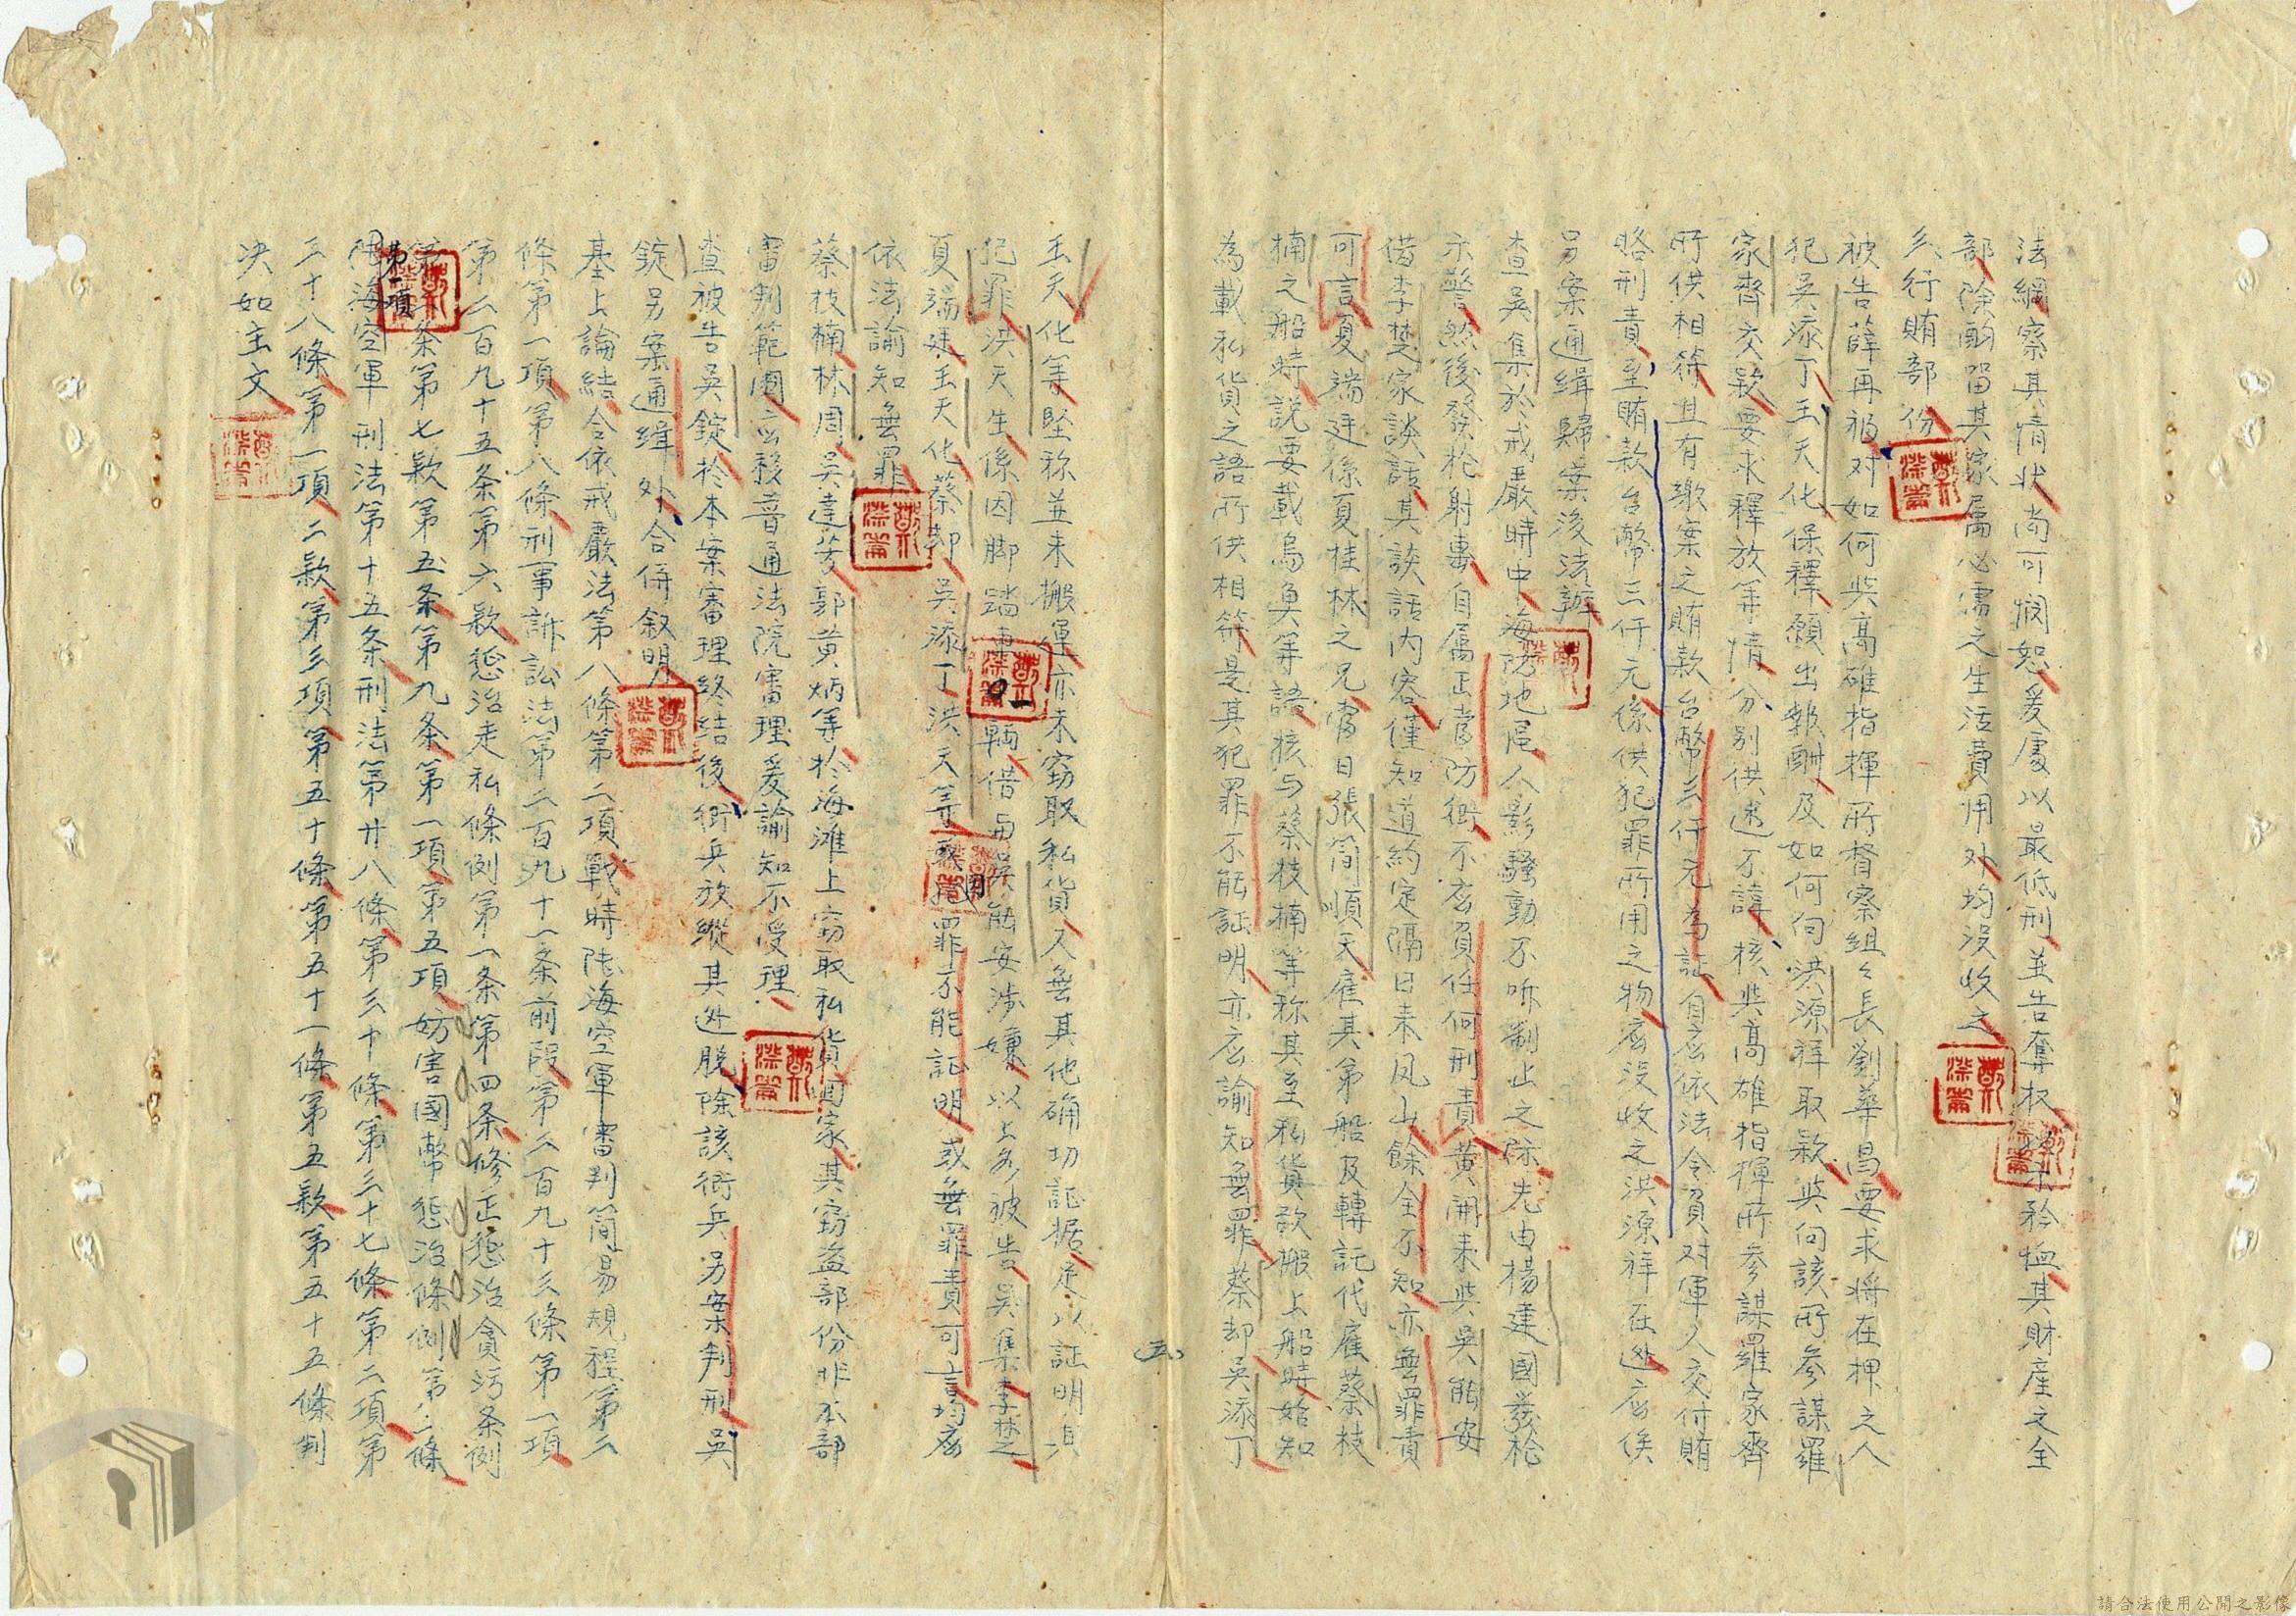 法網察其情狀尚可憫恕爰處以最低刑並告奪权示矜恤其財産之全
部除酌留其家屬必需之生活費用外均沒收之
乆行賄部份
被告薛再福对如何與高雄指揮所督察組々長劉華昌要求將在押之人
犯吳添丁王天化保釋願出報酬及如何向洪源祥取款與向該所參謀羅
家齊交款要求釋放等情分別供述不諱核與高雄指揮所参謀羅家齊
所供相符且有繳案之賄款台幣三仟元為証自应依法令負对軍人交付賄
賂刑責至賄款台幣三仟元係供犯罪所用之物应沒收之洪源祥在逃应俟
另案通緝歸案後法辦
查吳集於戒嚴時中海防地區人影騷動不听制止之際先由楊建國發枪
示警然後發枪射擊自屬正當防衛不应負任何刑責黄開来與吳能安
借李楚家談話其談話内容僅知道約定隔日来凤山餘全不知亦無罪責
可言夏端廷係夏桂林之兄當日張簡順天雇其弟船及轉託代雇蔡枝
楠之船時説要載烏魚等語核与蔡枝楠等称其至私貨欲搬上船時始知
為載私貨之語所供相符是其犯罪不能証明亦应諭知無罪蔡却吳添丁
王天化等堅称並未搬運亦未窃取私貨又無其他确切証据足以証明渠
犯罪洪天生係因脚踏車一輌借與吳能安涉嫌以上各被告吳集李楚
夏端廷王天化蔡却吳添丁洪天等或犯罪不能証明或無罪責可言均应
依法諭知無罪
蔡枝楠林周吳達芳郭黄炳等於海滩上窃取私貨回家其窃盜部份非本部
審判範圍应移普通法院審理爰諭知不受理
查被告吳錠於本案審理終結後衛兵放縱其逃脱除該衛兵另案判刑吳
錠另案通緝外合併叙明
基上論結合依戒嚴法第八條第二項戰時陸海空軍審判簡易規程第二
條第一項第八條刑事訴訟法第二百九十一条前段第二百九十三條第一項
第二百九十五条第六款懲治走私條例第一条第四条修正懲治貪污条例
第二条第七款第五条第九条第一項第五項妨害國幣懲治條例第二條
第一項
陸海空軍刑法第十五条刑法第廿八條第三十條第三十七條第二項第
三十八條第一項二款第三項第五十條第五十一條第五款第五十五條判
决如主文
五
請合法使用公開之影像